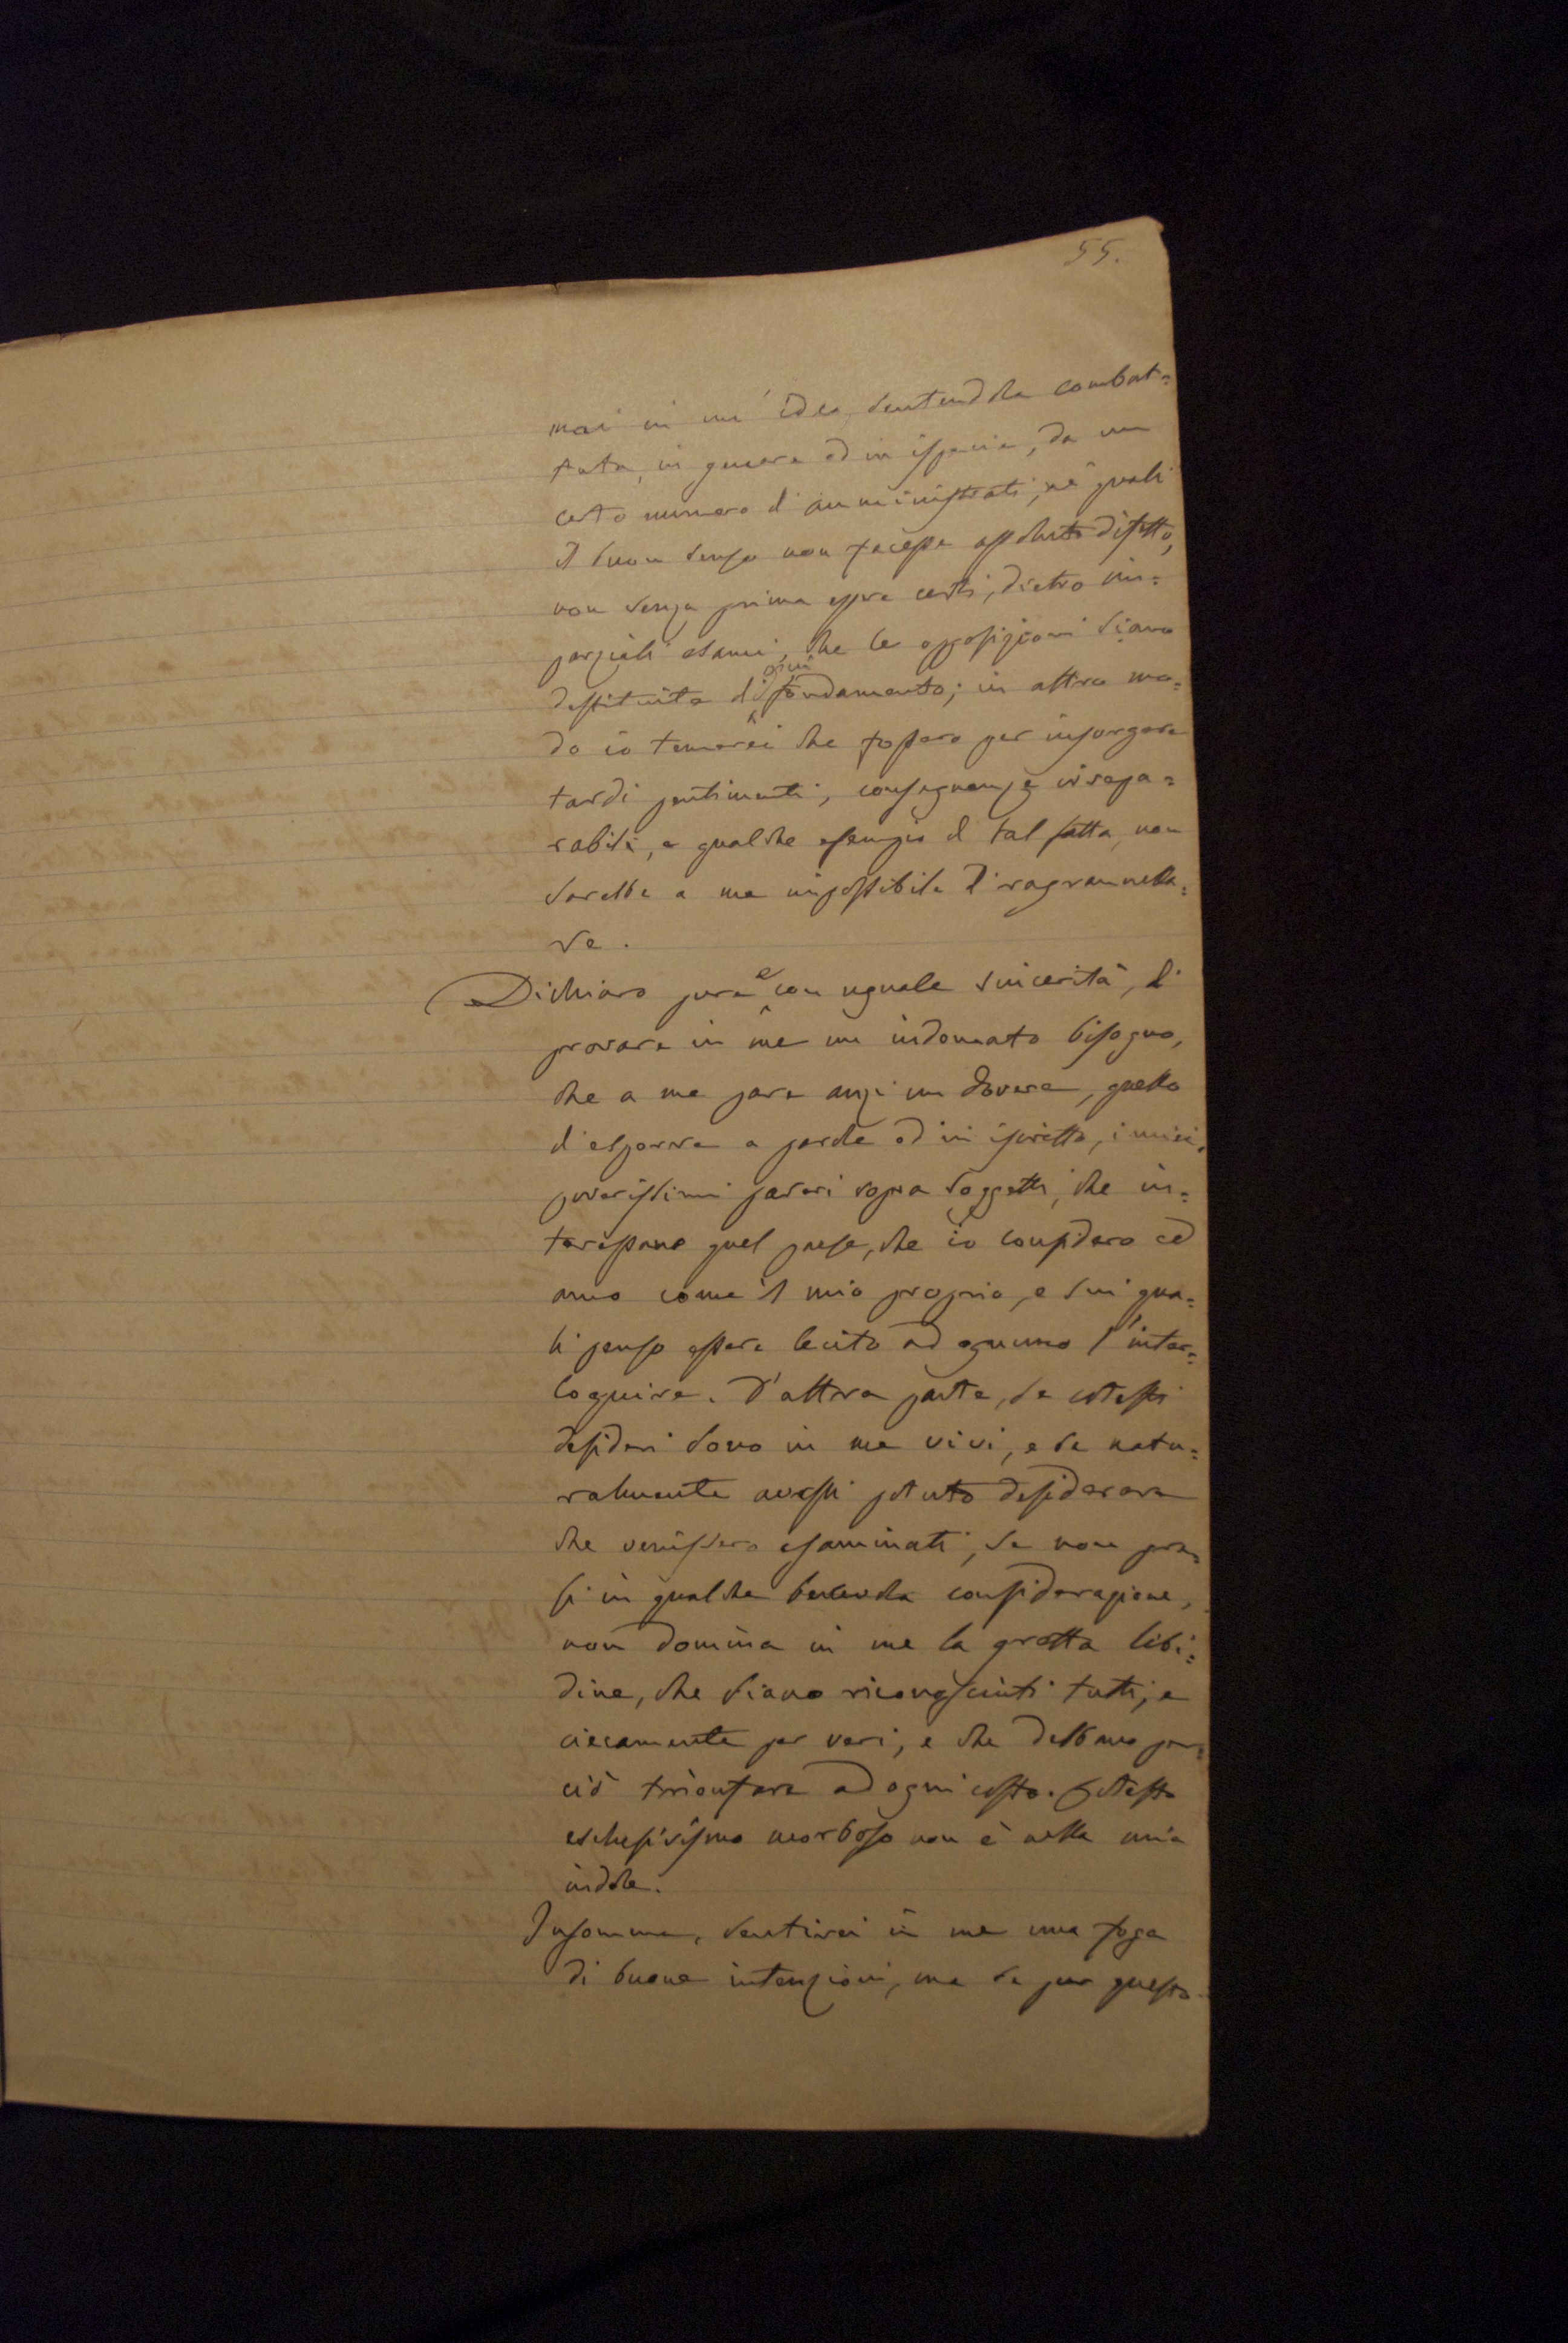 55.
mai in un' idea, sentendola combat=
tuta, in genere ed in ispecie, da un
certo numero d'amministrati, ne' quali
il buon senso non facesse assoluto difetto,
non senza prima essere certi, dietro im=
parziali esami, che le opposizioni siano
destituite di ogni fondamento; in altro mo=
do io temerei che fossero per insorgere
tardi pentimenti, conseguenze insepa=
rabili, e qualche esempio di tal fatta, non
sarebbe a me impossibile di raggranella=
re.
Dichiaro pure e con uguale sincerità, di
provare in me un indomato bisogno,
che a me pare anzi un dovere, quello
d'esporre a parole ed in iscritto, i miei
poverissimi pareri sopra soggetti, che in=
teressano quel paese, che io considero ed
amo come il mio proprio, e sui qua=
li penso essere lecito ad ognuno l'inter=
loquire. D'altra parte, se cotesti
desideri sono in me vivi, e se natu=
ralmente avessi potuto desiderare
che venissero esaminati, se non pre=
si in qualche benevola considerazione,
non domina in me la gretta libi=
dine, che siano riconosciuti tutti, e
ciecamente per veri, e che debbano per=
ciò trionfare ad ogni costo. Cotesto
esclusivismo morboso non è nella mia
indole.
Insomma, sentirei in me una foga
di buone intenzioni, ma se per questo